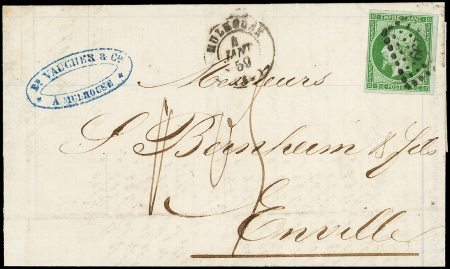 Ed. VAUCHER & Cie.
A MULHOUSE
MULHOUSE
4
JANV
59
EMPIRE FRANC
5 C POSTES 5 C
Messieurs
S. Bernheim & fils
Enville